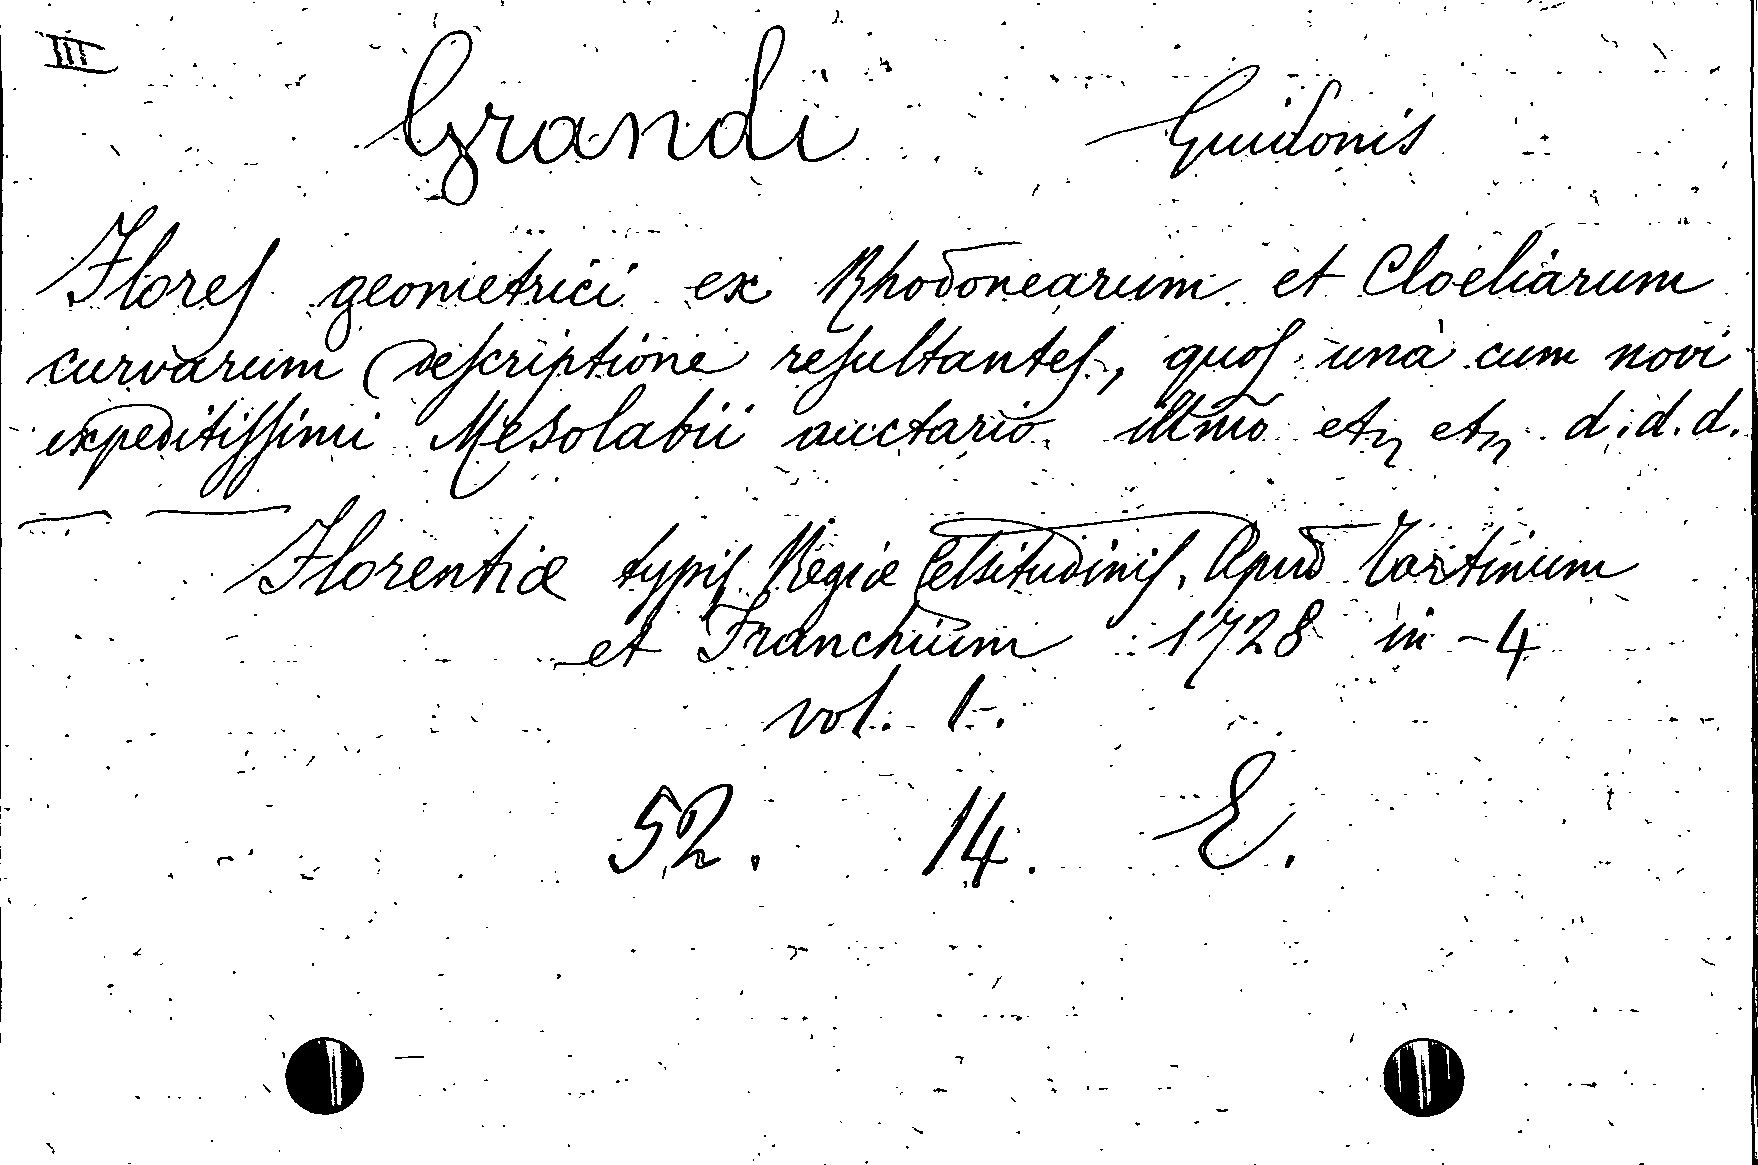 III
Grandi Guidonis
Flores geometrici ex Rhodonearum et Cloeliarum
curvarum descriptione resultantes, quos unà cum novi
expeditissimi Mesolabii auctario illmo etc etc d.d.d.
Florentiæ typis Regiæ Celsitudinis. Apud Tartinum
et Franchium 1728 in-4
vol. 1.
52. 14. E.